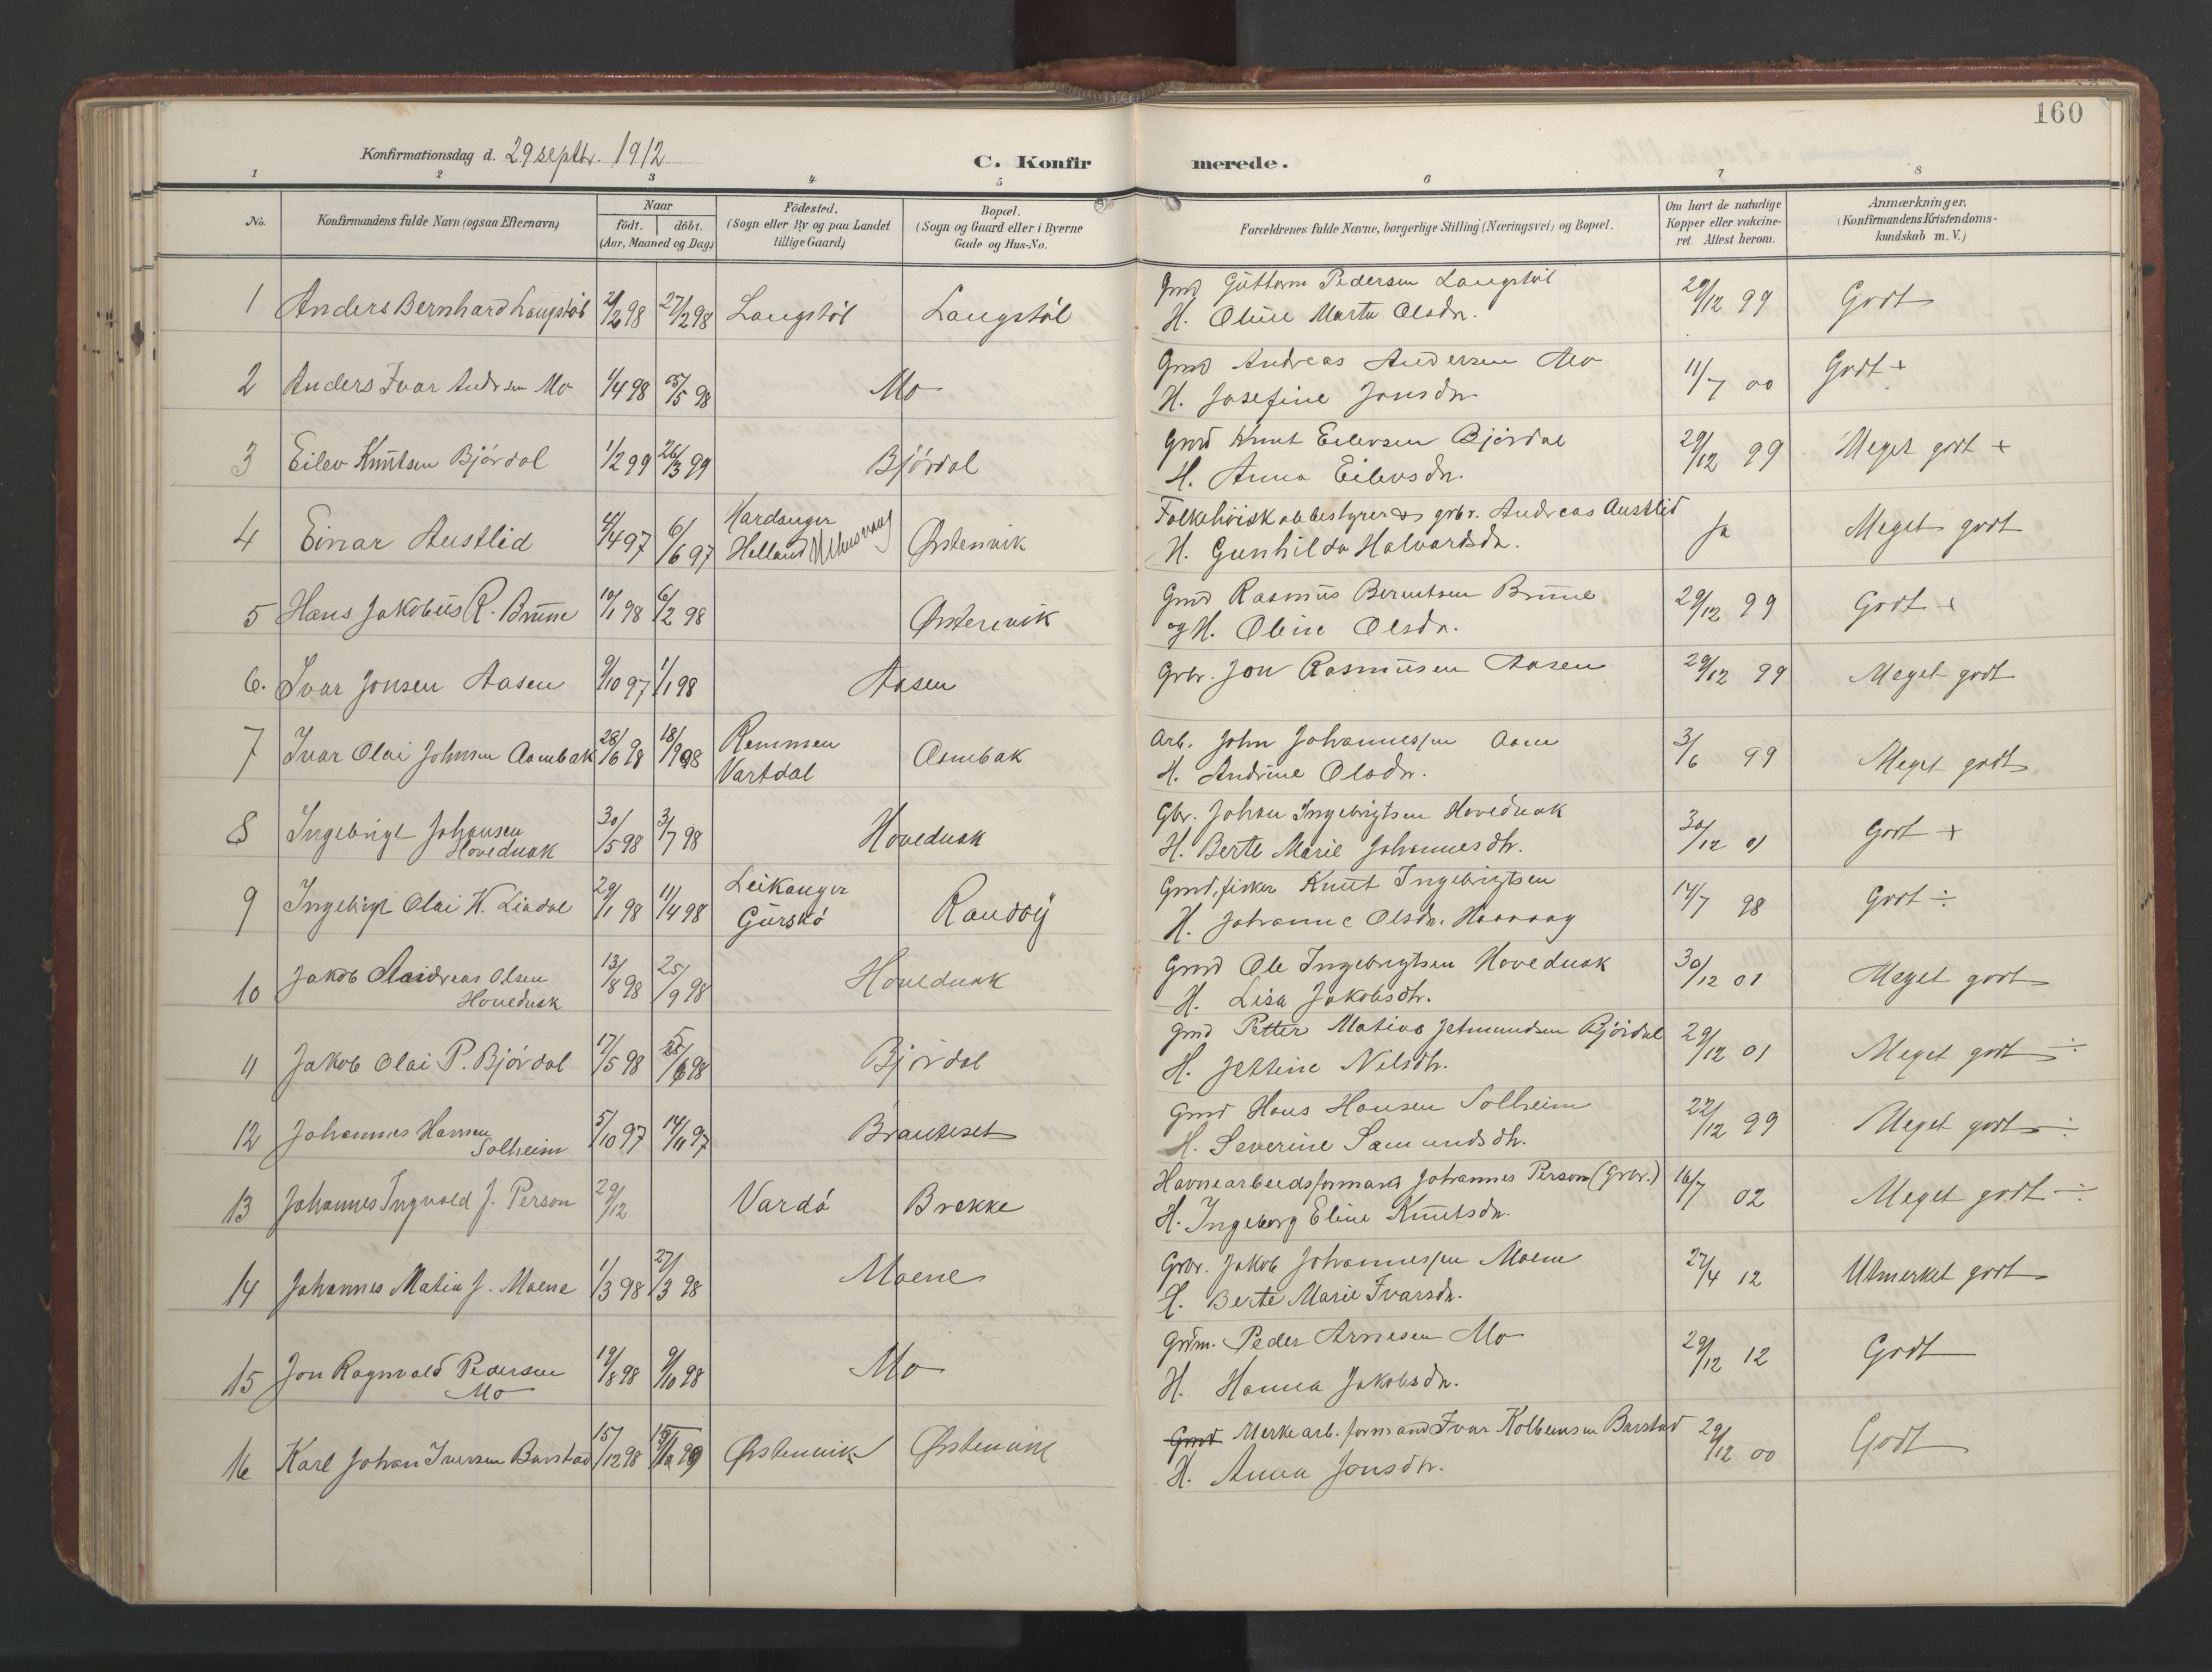 160
Konfirmationsdag d. 29 septbr. 1912
C. Konfirmerede.
1 2 3 4 5 6 7 8
No. Konfirmandens fulde Navn (ogsaa Efternavn) Naar födt. döbt. (Aar, Maaned og Dag) Födested. (Sogn eller By og paa Landet tillige Gaard) Bopæl. (Sogn og Gaard eller i Byerne Gade og Hus-No. Forældrenes fulde Navne, borgerlige Stilling (Næringsvei) og Bopæl. Om havt de naturlige Kopper eller vakcineret. Attest herom. Anmærkninger. (Konfirmandens Kristendomskundskab m. V.)
1 Anders Bernhard Langstöl 98 27/2 98 Langstöl Langstöl Gmd Guttorm Pedersen Langstöl 29/12 99 Godt
H. Oline Marta Olsdr.
2 Anders Ivar Andrsen Mo 1/4 98 /5 98 Mo Gmd Andreas Andersen Mo 11/7 00 Godt +
H. Josefine Jonsdr
3 Eilev Knutsen Björdal 1/2 99 26/3 99 Björdal Gmd Knut Eilevsen Björdal 29/12 99 Meget godt +
H. Anna Eilevsdr.
4 Einar Austlid 4/4 97 6/6 97 Hardanger Helland Ørstenvik Folkehöiskolebestyrer og grbr. Andreas Austlid Ja Meget godt
H. Gunhilda Halvardsdr.
5 Hans Jakobus R. Brune 10/1 98 6/2 98 Ørstenvik Gmd Rasmus Berntsen Brune 29/12 99 Godt +
og H. Oline Olsdr.
6. Ivar Jonsen Aasen 9/10 97 1/1 98 Aasen Grbr. Jon Rasmusen Aasen 29/12 99 Meget godt
7 Ivar Olai Johnsen Aambak 28/6 98 18/9 98 Remmen Vartdal Aambak Arb. John Johannessen Aam 3/6 99 Meget godt
H. Andrine Olsdr.
8 Ingebrigt Johansen Hovednak 30/5 98 3/7 98 Hovednak Gbr. Johan Ingebrigtsen Hovednak 30/12 01 Godt +
H. Berte Marie Johannesdtr.
9 Ingebrigt Olai K. Lindal 29/1 98 11/4 98 Leikanger Gurskö Raudöy Gmd, fisker Knut Ingebrigtsen 14/7 98 Godt ÷
H. Johanne Olsdr.
10 Jakob Andreas Olsen Hovednak 13/8 98 25/9 98 Hovednak Gmd Ole Ingebrigtsen Hovednak 30/12 01 Meget godt
H. Lisa Jakobsdtr.
11 Jakob Olai P. Björdal 17/5 98 5/6 98 Björdal Gmd Petter Matias Jetmundsen Björdal 29/12 01 Meget godt ÷
H. Jettine Nilsdtr.
12 Johannes Hansen Solheim 5/10 97 14/11 97 Brauteset Gmd Hans Hansen Solheim 22/12 99 Meget godt ÷
H. Severine Samundsdtr.
13 Johannes Ingvald J. Person 29/12 Vardö Brekke Havnearbeidsformand Johannes Person (Grbr.) 16/7 02 Meget godt ÷
H. Ingeborg Eline Knutsdr.
14 Johannes Matia J. Moene 1/3 98 27/3 98 Moene Grbr. Jakob Johannessen Moen 27/4 12 Utmerket godt
H. Berte Marie Ivarsdr.
15 Jon Ragnvald Pedersen Mo 19/8 98 9/10 98 Mo Grdm. Peder Arnesen Mo 29/12 12 Godt
H. Hanna Jakobsdr.
16 Karl Johan Iversen Barstad 15/12 98 Ørstenvik Ørstenvik Gmd Merkearb. formand Ivar Kolbensen Barstad 29/12 00 Godt
H. Anna Jonsdtr.